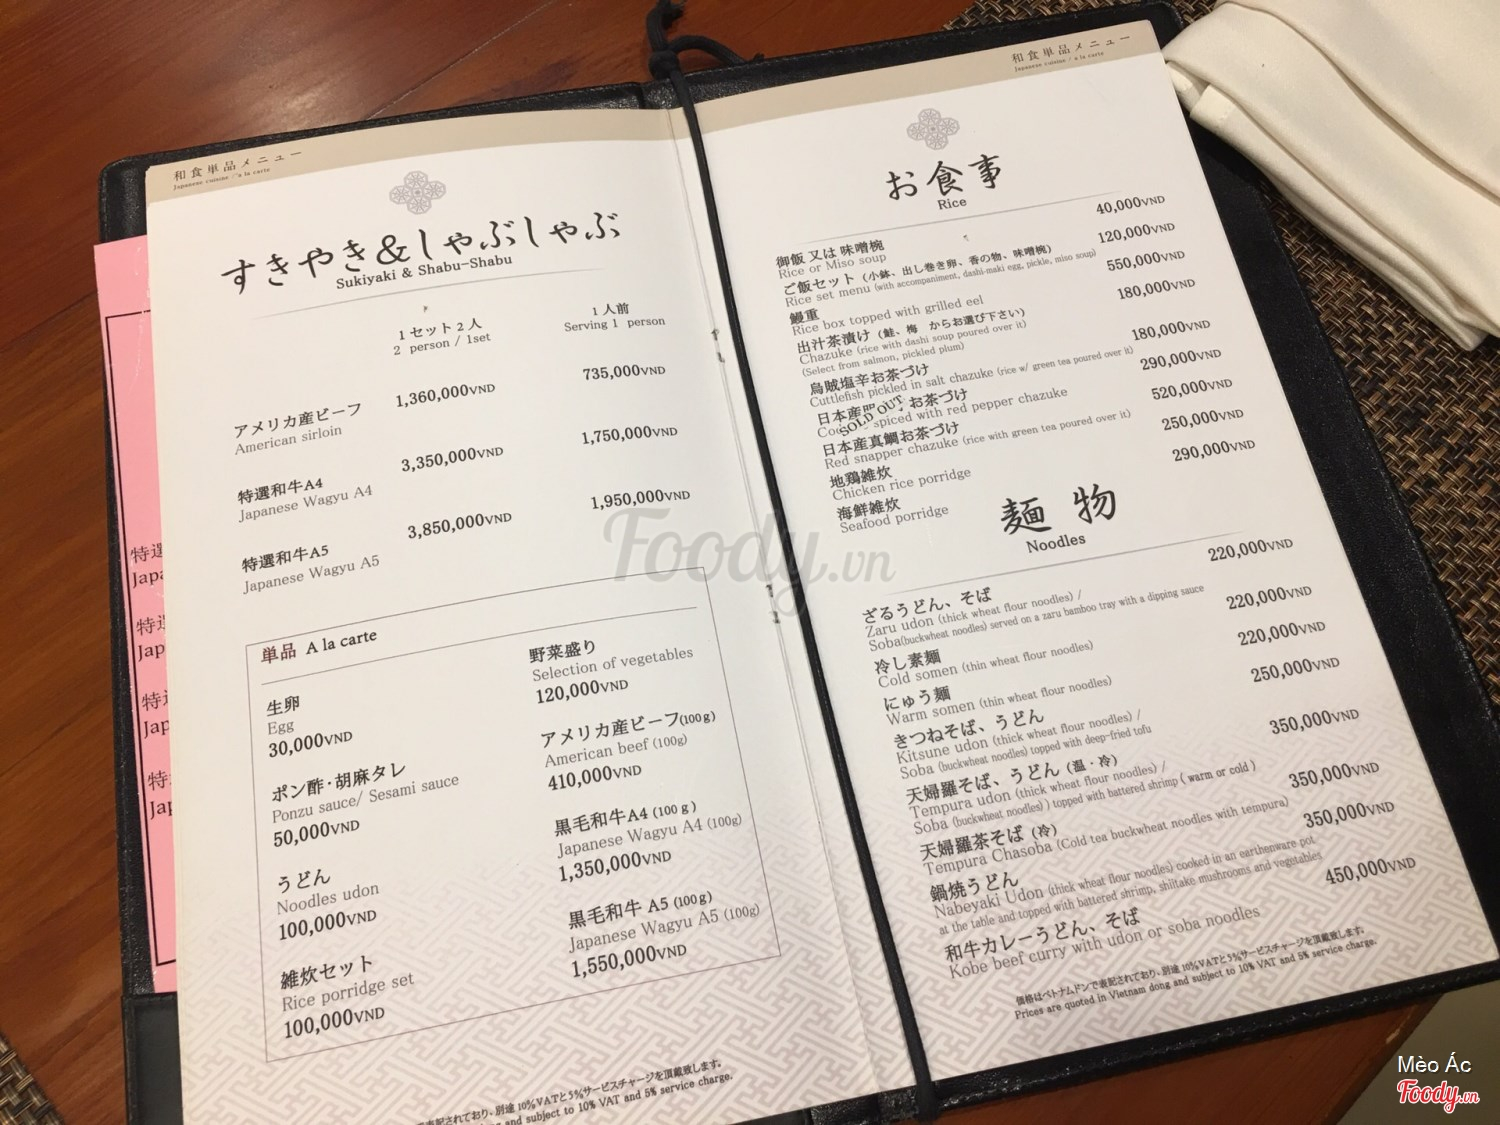 和食単品メニュー
Japanese cuisine / a la carte
すきやき&しゃぶしゃぶ
Sukiyaki & Shabu-Shabu
1セット2人
2 person / 1set
1人前
Serving 1 person
アメリカ産ビーフ
American sirloin
1,360,000VND
735,000VND
特選和牛A4
Japanese Wagyu A4
3,350,000VND
1,750,000VND
特選和牛A5
Japanese Wagyu A5
3,850,000VND
1,950,000VND
単品 A la carte
生卵
Egg
30,000VND
ポン酢・胡麻タレ
Ponzu sauce/ Sesami sauce
50,000VND
うどん
Noodles udon
100,000VND
雑炊セット
Rice porridge set
100,000VND
野菜盛り
Selection of vegetables
120,000VND
アメリカ産ビーフ(100g)
American beef (100g)
410,000VND
黒毛和牛A4 (100g)
Japanese Wagyu A4 (100g)
1,350,000VND
黒毛和牛 A5 (100g)
Japanese Wagyu A5 (100g)
1,550,000VND
表記されており、別途 10%VATと5%サービスチャージを頂戴致します。
and subject to 10% VAT and 5% service charge.
特選
Japa
特選
Jap
特
Jap
特
Jap
和食単品メニュー
Japanese cuisine / a la carte
お食事
Rice
御飯 又は 味噌椀
Rice or Miso soup
40,000VND
ご飯セット (小鉢、出し巻き卵、香の物、味噌椀)
Rice set menu (with accompaniment, dashi-maki egg, pickle, miso soup)
120,000VND
鰻重
Rice box topped with grilled eel
550,000VND
出汁茶漬け (鮭、梅 からお選び下さい)
Chazuke (rice with dashi soup poured over it)
(Select from salmon, pickled plum)
180,000VND
烏賊塩辛お茶づけ
Cuttlefish pickled in salt chazuke (rice w/ green tea poured over it)
180,000VND
日本産 お茶づけ
SOLD OUT
spiced with red pepper chazuke
290,000VND
日本産真鯛お茶づけ
Red snapper chazuke (rice with green tea poured over it)
520,000VND
地鶏雑炊
Chicken rice porridge
250,000VND
海鮮雑炊
Seafood porridge
290,000VND
麺物
Noodles
ざるうどん、そば
Zaru udon (thick wheat flour noodles) /
Soba(buckwheat noodles) served on a zaru bamboo tray with a dipping sauce
220,000VND
冷し素麺
Cold somen (thin wheat flour noodles)
220,000VND
にゅう麺
Warm somen (thin wheat flour noodles)
220,000VND
きつねそば、うどん
Kitsune udon (thick wheat flour noodles) /
Soba (buckwheat noodles) topped with deep-fried tofu
250,000VND
天婦羅そば、うどん (温・冷)
Tempura udon (thick wheat flour noodles) /
Soba (buckwheat noodles) ) topped with battered shrimp ( warm or cold )
350,000VND
天婦羅茶そば (冷)
Tempura Chasoba (Cold tea buckwheat noodles with tempura)
350,000VND
鍋焼うどん
Nabeyaki Udon (thick wheat flour noodles) cooked in an earthenware pot
at the table and topped with battered shrimp, shiitake mushrooms and vegetables
350,000VND
和牛カレーうどん、そば
Kobe beef curry with udon or soba noodles
450,000VND
価格はベトナムドンで表記されており、別途 10%VATと5%サービスチャージを頂戴致します。
Prices are quoted in Vietnam dong and subject to 10% VAT and 5% service charge.
Foody.vn
Mèo Ác
Foody.vn